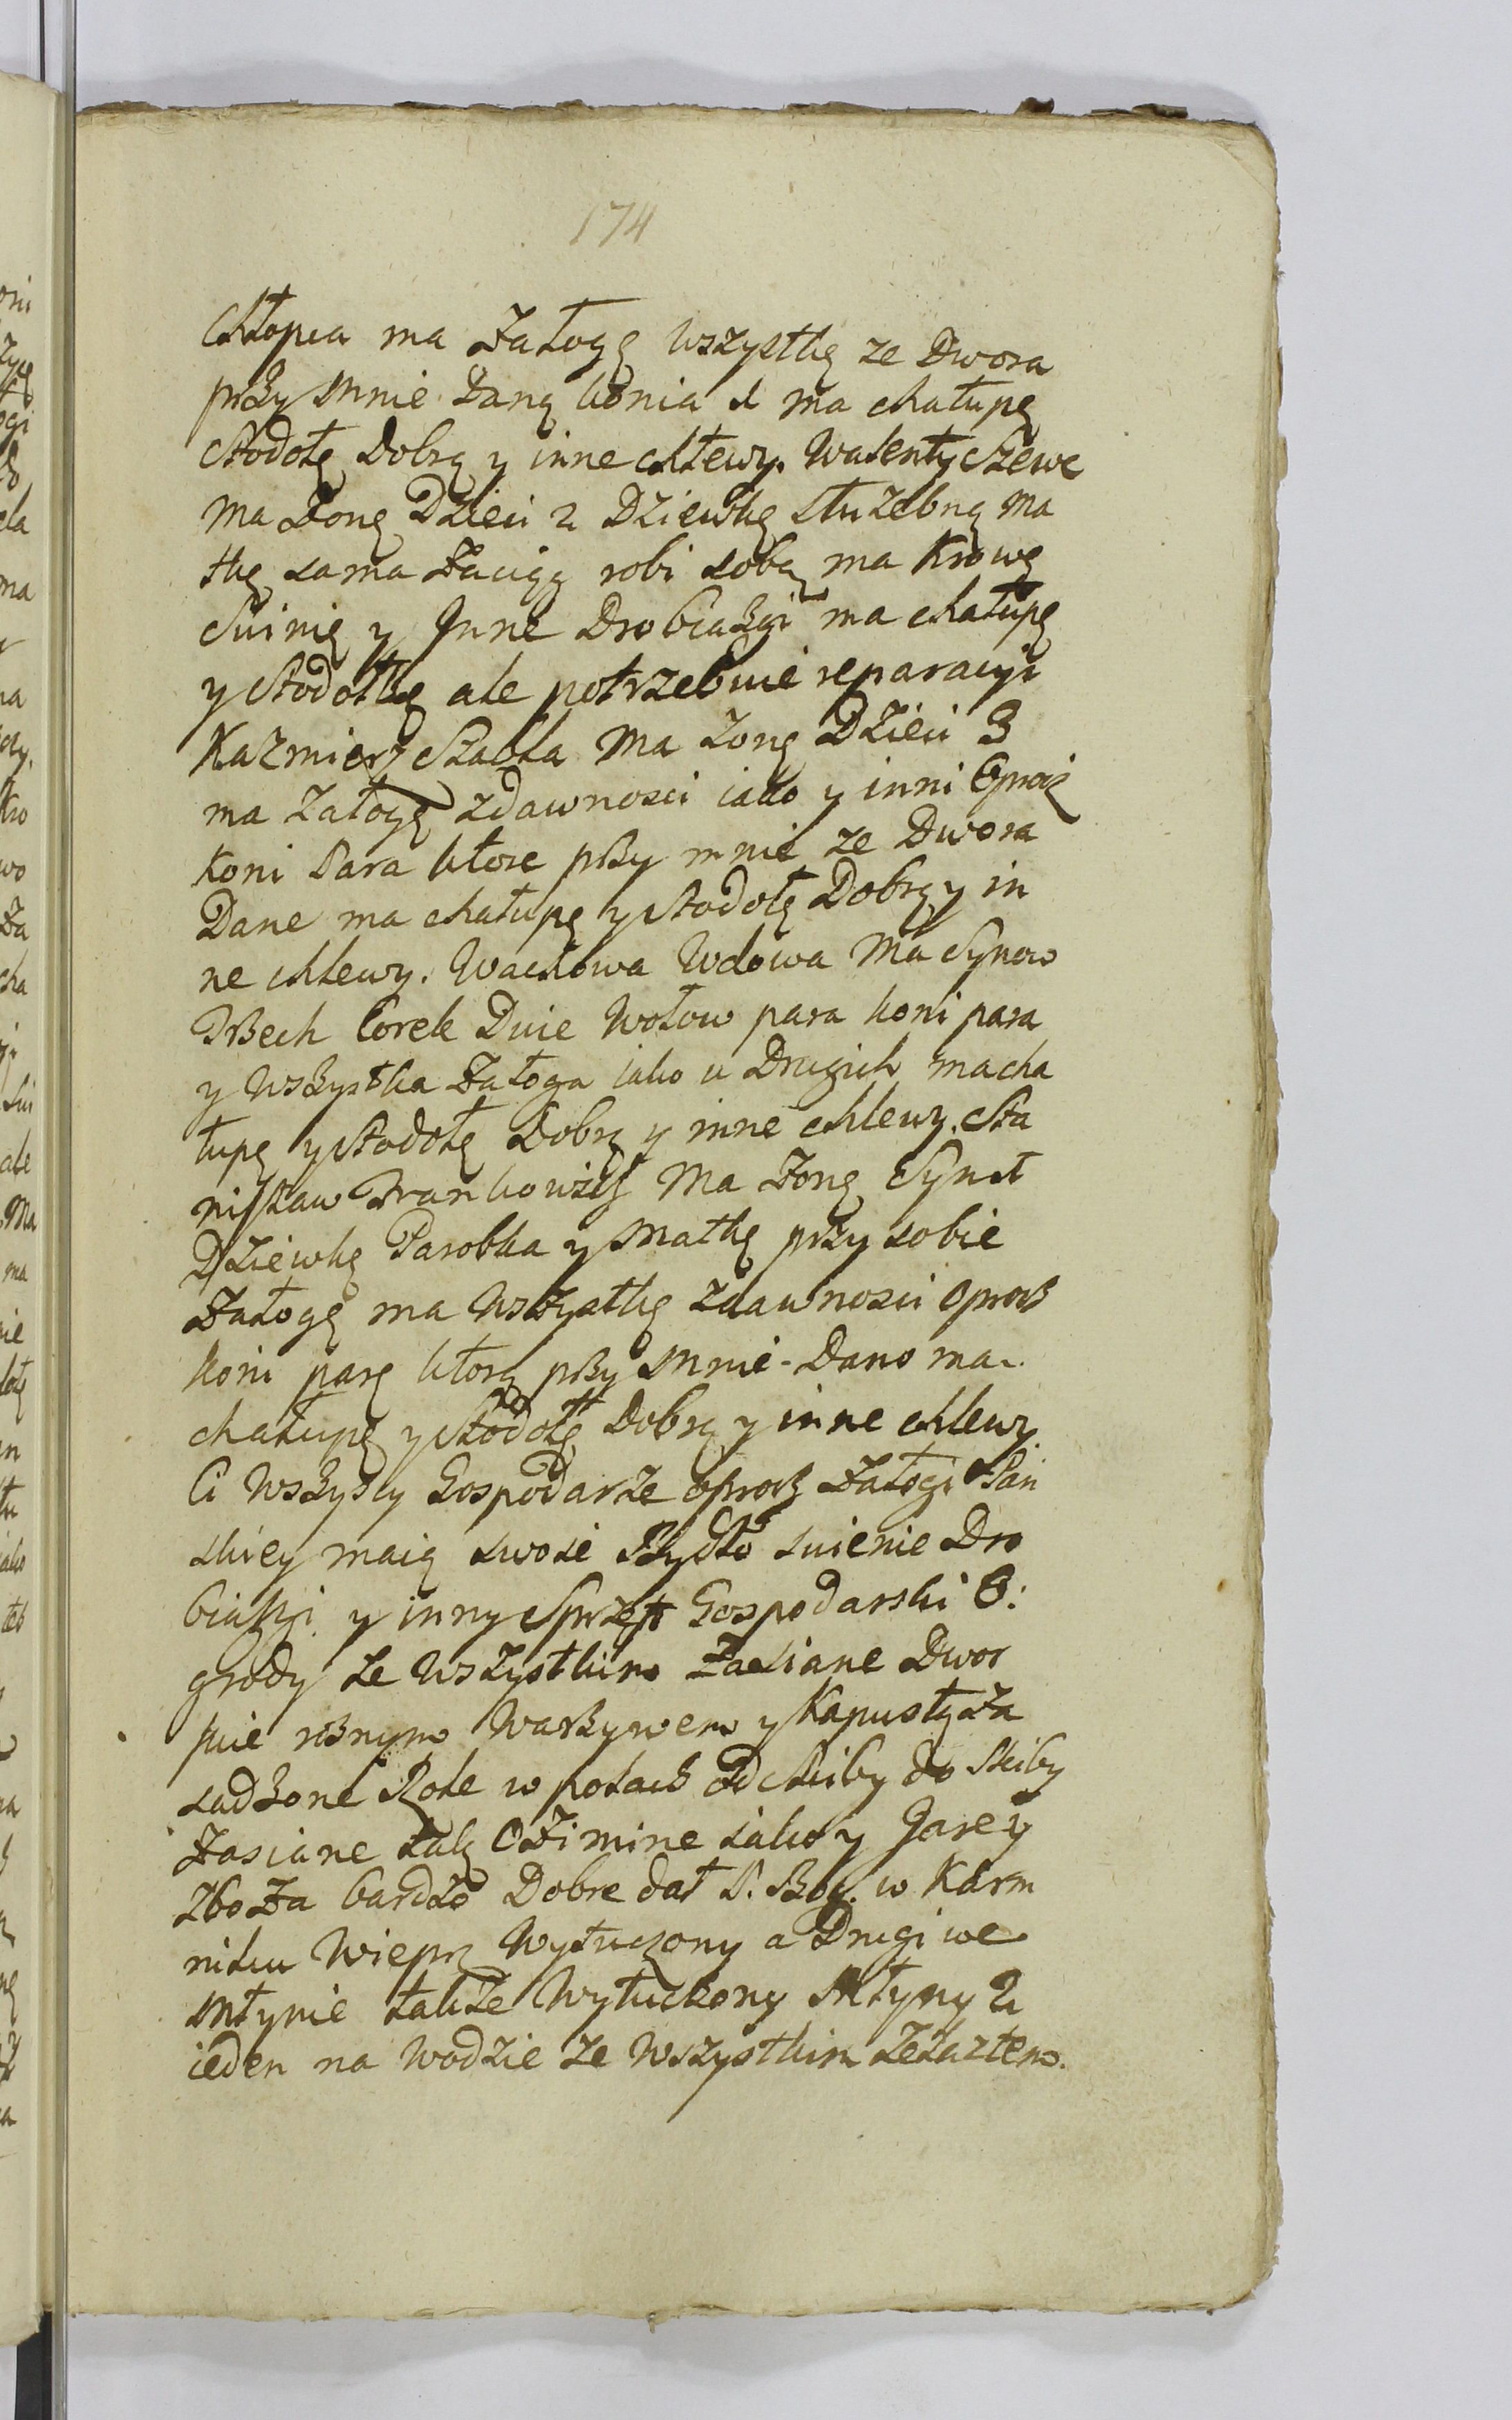 174
Chłopca ma Załogę wszystkę ze Dwora
przy mnie daną konia 1 ma chałupę
stodołę Dobrą y inne chlewy. Walenty Szewc
ma Zonę Dzieci 2 Dziewkę służebną ma
tkę sama Zaciąg robi sobą ma Krowę
Swinię y Inne Drobiazgi ma chałupę
y stodołkę ale potrzebuie reparacyi
Kazmierz Szabla Ma zonę Dzieci 3
ma załogę zdawnosci iako y inni Oprocz
Koni Para ktore przy mnie ze Dwora
Dane ma chałupę y stodołę Dobrą y in
ne chlewy. Wachowa Wdowa Ma Synow
Trzech Corek Dwie Wołow para koni para
y wszystka Załoga iako u Drugich ma cha
łupę y stodołę Dobrą y inne chlewy. Sta
nisław Frankowicz Ma Zonę Syna 1
Dziewkę Parobka y Matkę przy sobie
Załogę ma wszystkę zdawnosci oprocz
koni parę ktorą przy mnie Dano ma
chałupę y stodołę Dobrą y inne chlewy
Ci wszyscy Gospodarze oprocz Załogi Pań
skiey maią swoie Bydło swienie Dro
biazgi y inny Sprzęt Gospodarski O:
grody ze wszystkim Zasiane Dwor
skie roznym warzywem y Kapustą Za
sadzone Role w polach od Skiby do Skiby
Zasiane tak Ozimine iako y Jarey
zboza bardzo Dobre dał P. Bog. w Karm
niku Wieprz Wytuczony a Drugi we
Młynie także Wytuczony Młyny 2
ieden na wodzie ze wszystkim zelaztem.